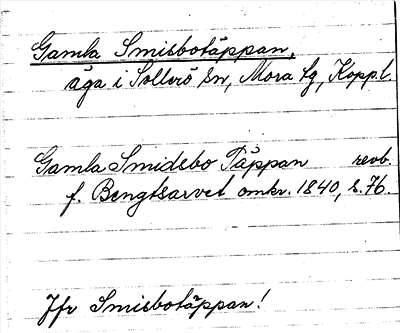 Gamla Smisbotäppan,
äga i Sollerö sn, Mora tg, Kopp.l.
Gamla Smidsbo Täppan revb.
f. Bengtsarvet omkr. 1840, s. 76.
Jfr Smisbotäppan!